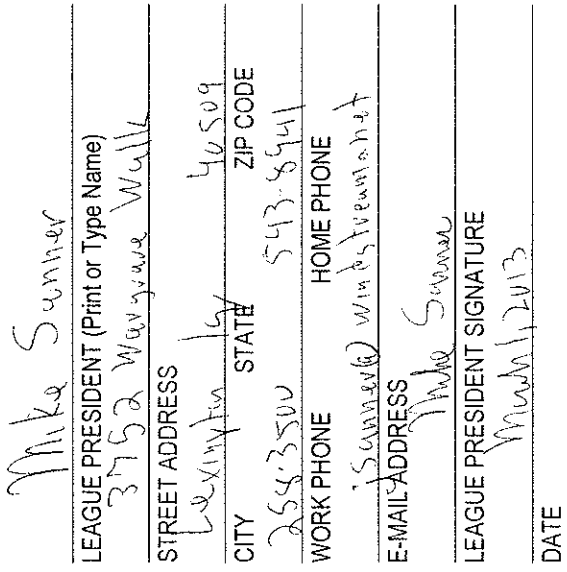 Mike Sanner
LEAGUE PRESIDENT (Print or Type Name)
3752 Wargrave Walk
STREET ADDRESS
Lexington Ky 40509
CITY STATE ZIP CODE
258-3500 543-8941
WORK PHONE HOME PHONE
@windstream.net
E-MAIL ADDRESS
Mike Sanner
LEAGUE PRESIDENT SIGNATURE
March 1, 2013
DATE